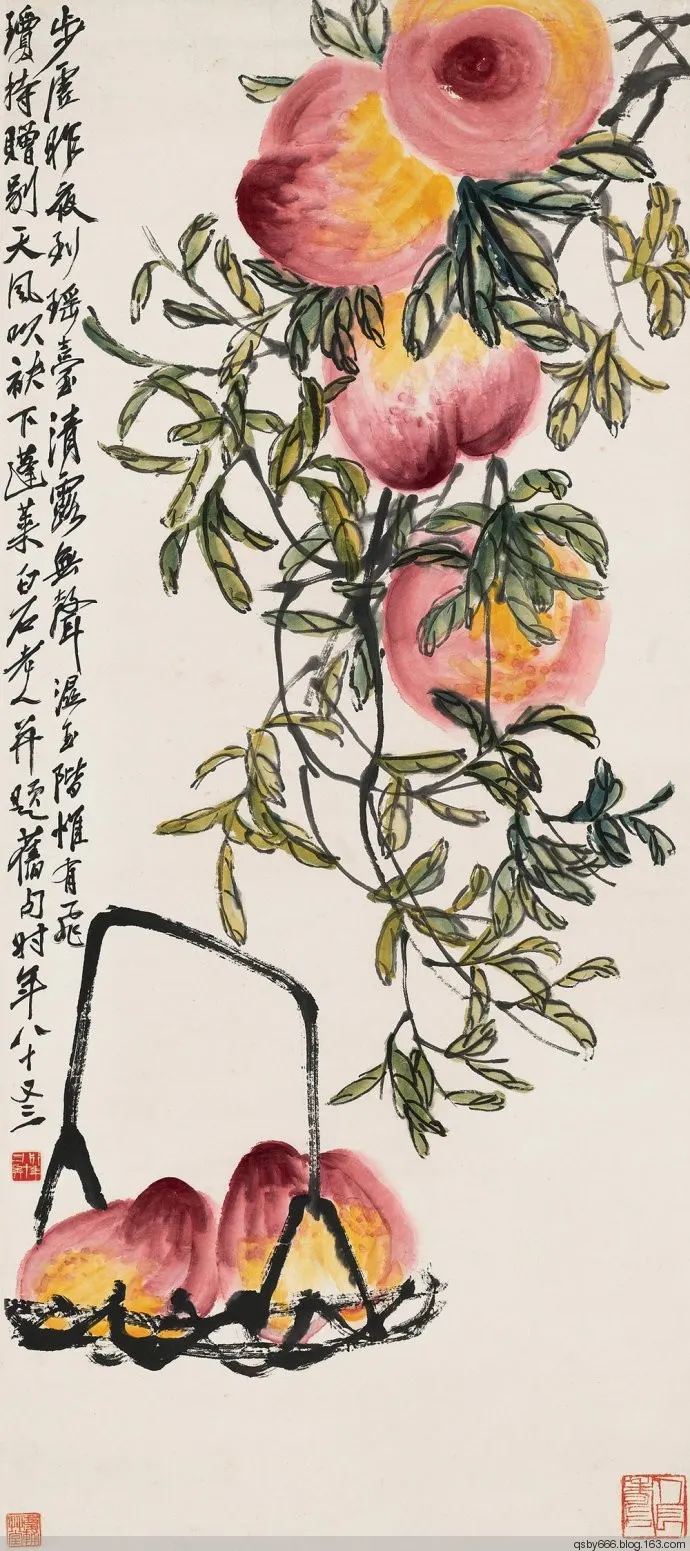 步虛昨夜到瑤臺清露無聲濕玉階惟有飛
瓊持贈別天風吹袂下蓬萊白石老人并題舊句時年八十又三
qsby666.blog.163.com